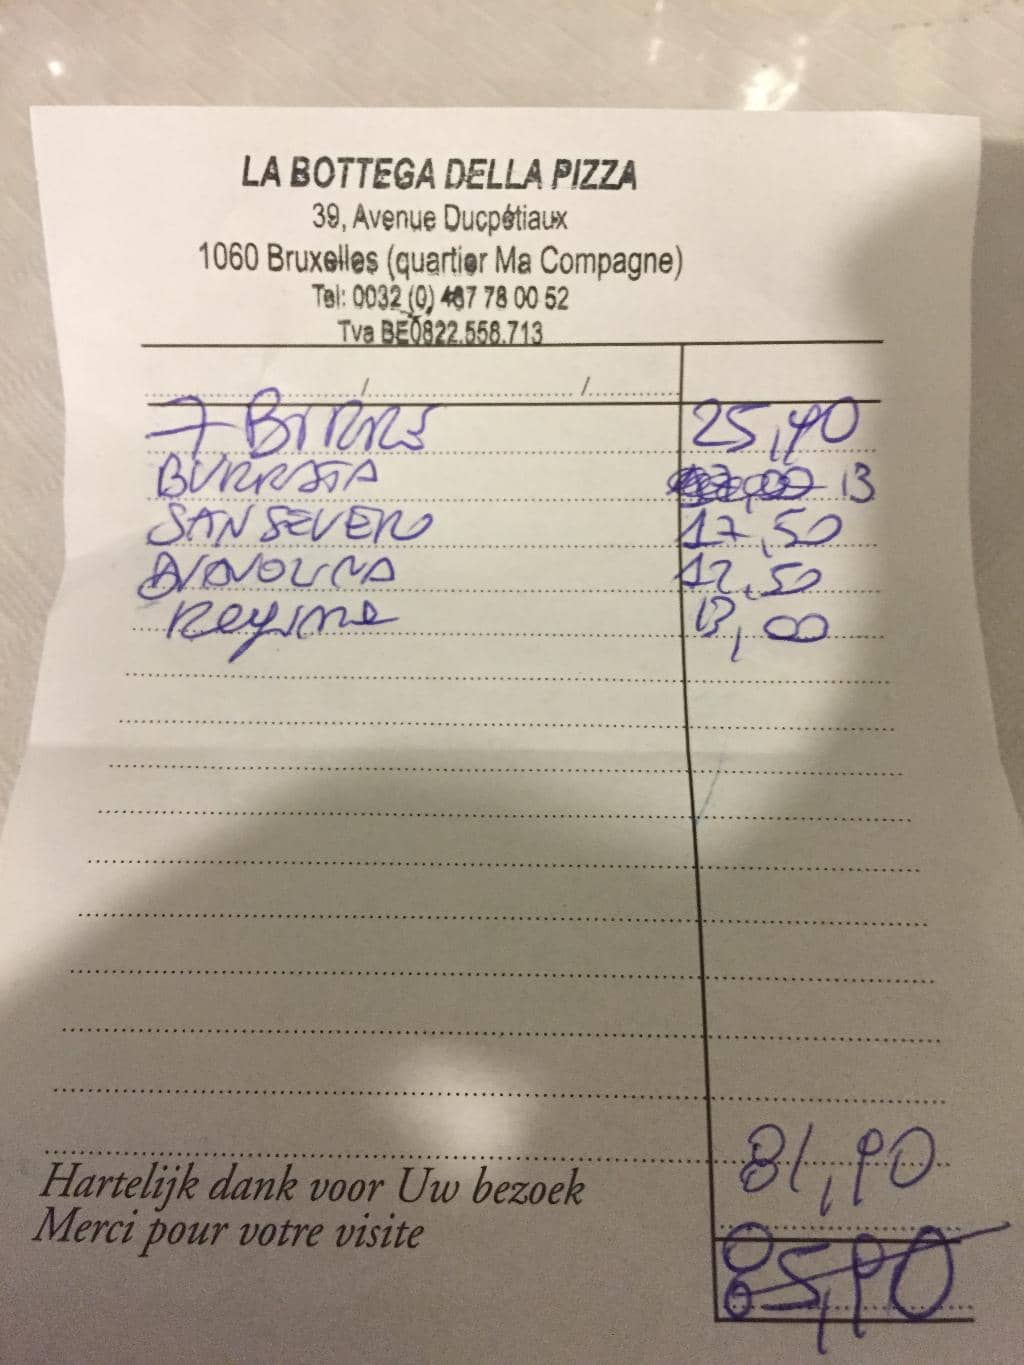 LA BOTTEGA DELLA PIZZA
39, Avenue Ducpétiaux
1060 Bruxelles (quartier Ma Compagne)
Tel: 0032 (0) 487 78 00 52
Tva BE0822.558.713
/ /
7 BIRRE 25,90
BURRATA 13
SAN SEVERO 17,50
12,50
Regina 13,00
81,90
Hartelijk dank voor Uw bezoek
Merci pour votre visite
85,90